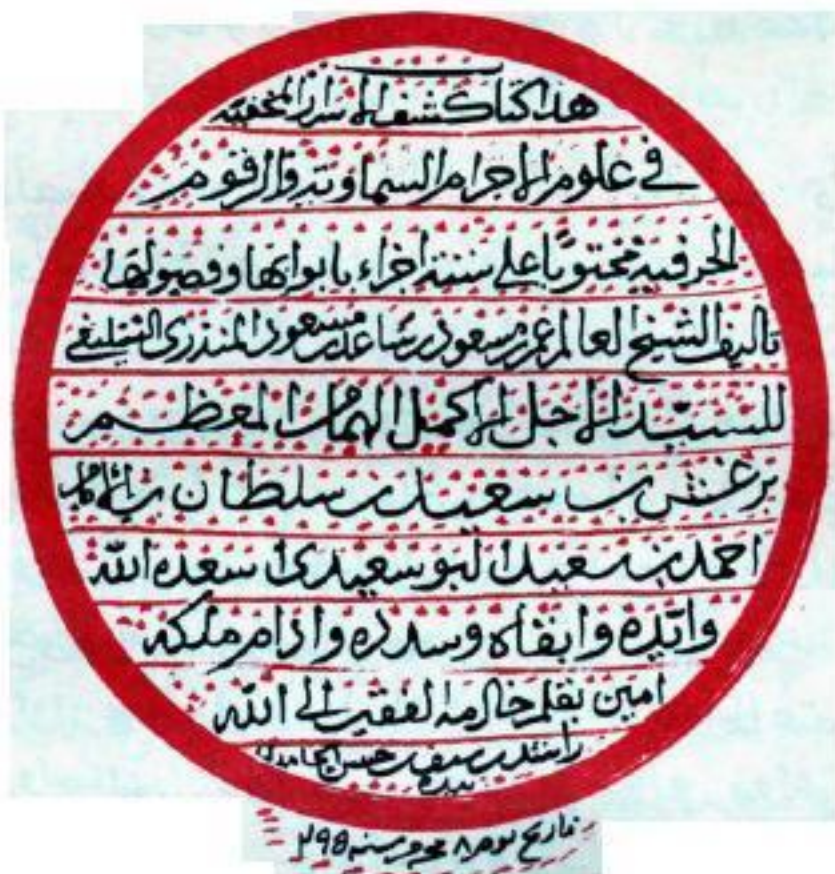 هذا كتاب كشف الاسرار المخفية
في علوم الاجرام السماوية والرقوم
الحرفية محتويا على ستة اجزاء بابوابها وفصولها
تاليف الشيخ العالم عمر بن مسعود بن ساعد بن مسعود المنذري السليفي
للسيد الاجل الاكمل الهمام المعظم
برغش بن سعيد بن سلطان بن الامام
احمد بن سعيد البوسعيدي اسعده الله
وايده وابقاه وسدده وادام ملكه
امين بقلم خادمه الفقير الى الله
راشد بن سيف
بيده
تاريخ يوم ٨ محرم سنه ١٢٩٥